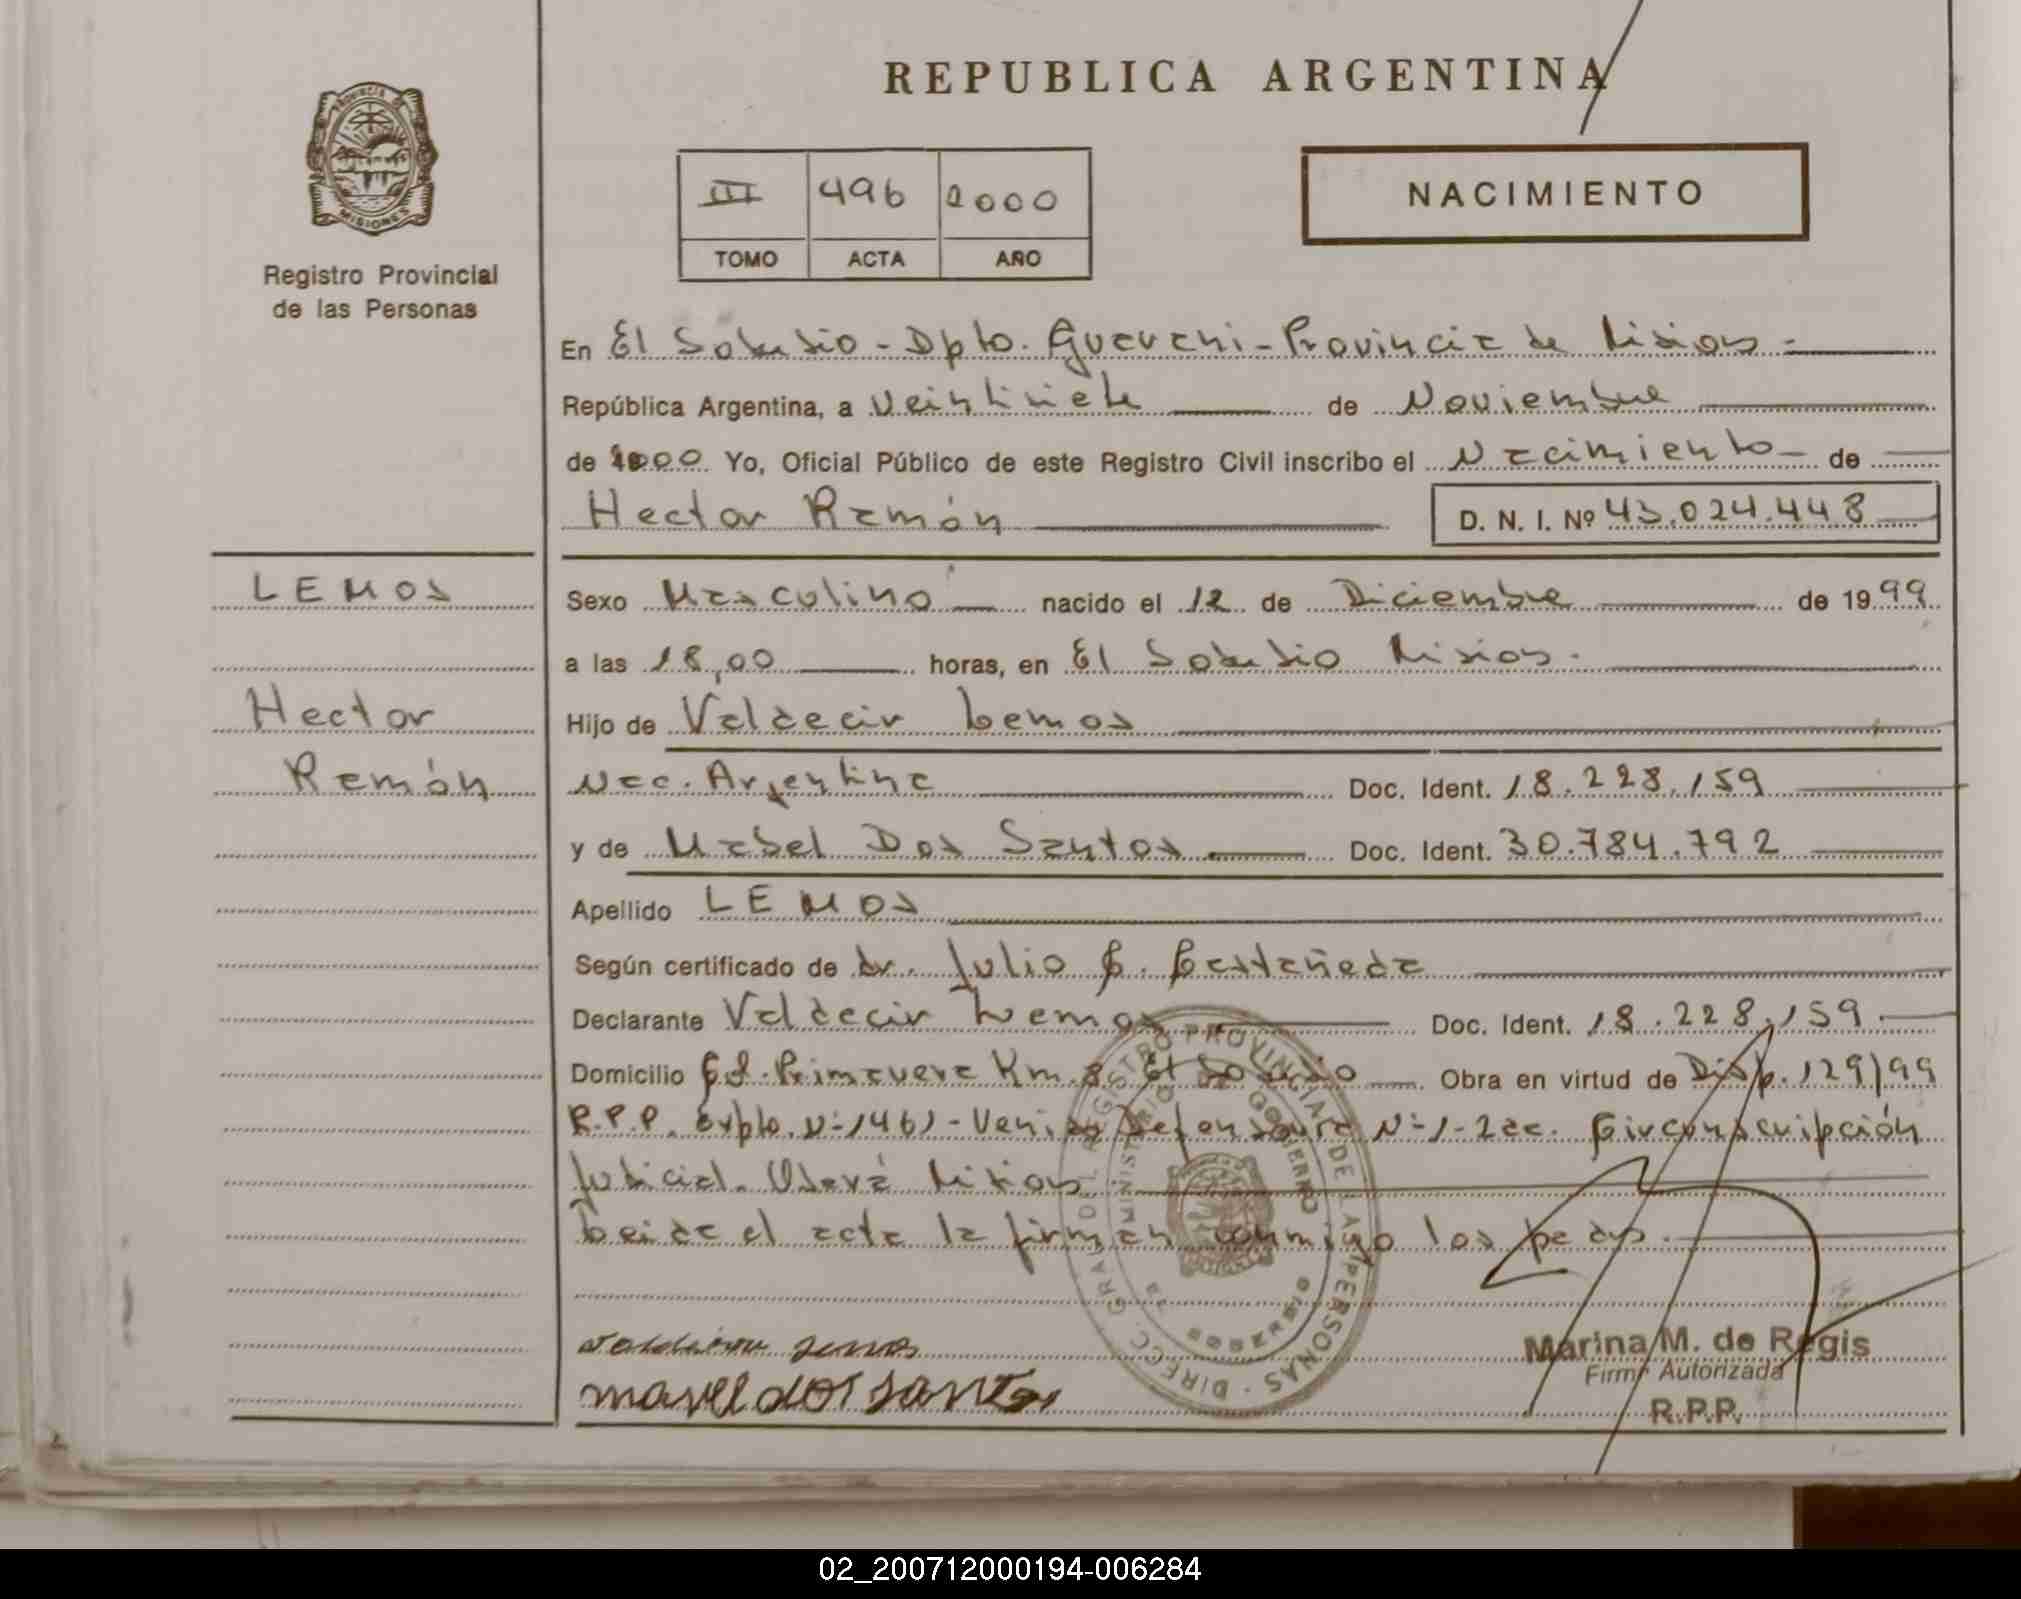 REPUBLICA ARGENTINA
PROVINCIA DE
MISIONES
Registro Provincial
de las Personas
III 496 2000
TOMO ACTA AÑO
NACIMIENTO
En El Soberbio - Dpto. Guarani - Provincia de Misiones -
República Argentina, a Veintisiete de Noviembre
de 2000 Yo, Oficial Público de este Registro Civil inscribo el Nacimiento de
Hector Ramón D. N. I. Nº 43.024.448
LEMOS
Hector
Ramón
Sexo Masculino nacido el 12 de Diciembre de 1999
a las 18,00 horas, en El Soberbio Misiones.
Hijo de Valdecir Lemos
Nac. Argentina Doc. Ident. 18.228.159
y de Mabel Dos Santos Doc. Ident. 30.784.792
Apellido LEMOS
Según certificado de dr. Julio C. Castañeda
Declarante Valdecir Lemos Doc. Ident. 18.228.159
Domicilio Col. Primavera Km. 8 El Soberbio Obra en virtud de Disp. 129/99
R.P.P. Expte. Nº 1461 - Defensoria Nº 1 - 2da. Circunscripción
Judicial. Oberá Misiones
Leida el acta la firman conmigo los padres.
DIRECC. GRAL. DEL REGISTRO PROVINCIAL DE LAS PERSONAS
MINISTERIO DE GOBIERNO
mavel dos santos
Marina M. de Regis
Firma Autorizada
R.P.P.
02_200712000194-006284